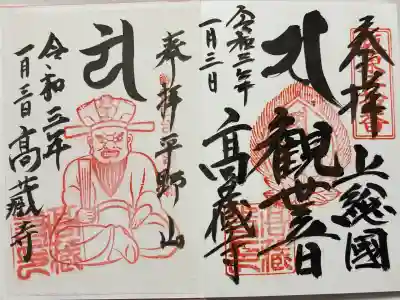 奉拝 上総國
観世音
高蔵寺
令和三年
一月三日
奉拝 平野山
高蔵寺
令和三年
一月三日